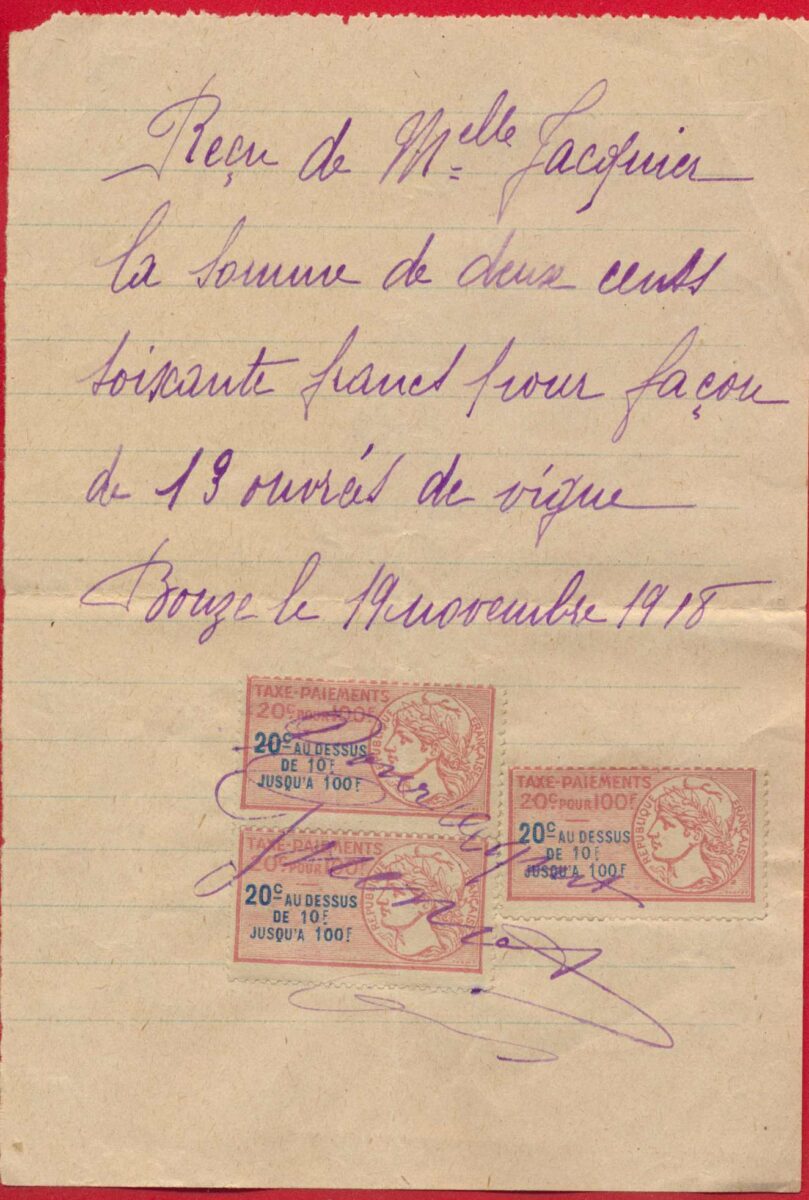 Reçu de Melle Jacquier
la somme de deux cents
soixante francs pour façon
de 13 ouvrés de vigne
Bouze le 19 novembre 1918
TAXE-PAIEMENTS
20c POUR 100F
20c AU DESSUS
DE 10F
JUSQU'A 100F
RÉPUBLIQUE FRANÇAISE
TAXE-PAIEMENTS
20c POUR 100F
20c AU DESSUS
DE 10F
JUSQU'A 100F
RÉPUBLIQUE FRANÇAISE
TAXE-PAIEMENTS
20c POUR 100F
20c AU DESSUS
DE 10F
JUSQU'A 100F
RÉPUBLIQUE FRANÇAISE
Pour acquit